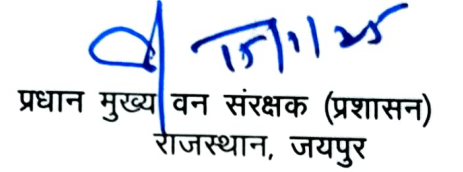 15/1/25
प्रधान मुख्य वन संरक्षक (प्रशासन)
राजस्थान, जयपुर